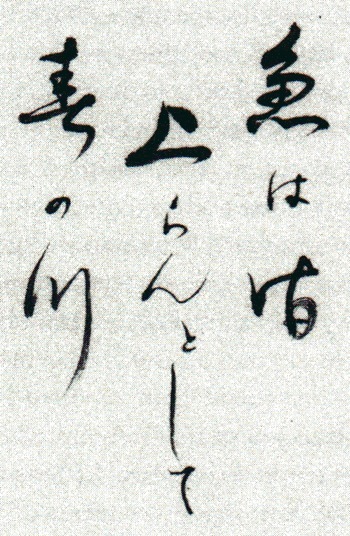 魚は皆
上らんとして
春の川